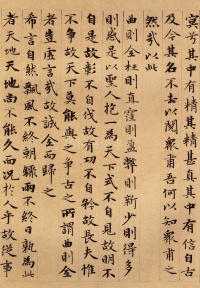 冥兮其中有精其精甚真其中有信自古
及今其名不去以閱眾甫吾何以知眾甫之
然哉以此
曲則全枉則直窪則盈弊則新少則得多
則惑是以聖人抱一為天下式不自見故明不
自是故彰不自伐故有功不自矜故長夫惟
不爭故天下莫能與之爭古之所謂曲則全
者豈虛言哉誠全而歸之
希言自然飄風不終朝驟雨不終日孰為此
者天地天地尚不能久而況於人乎故從事